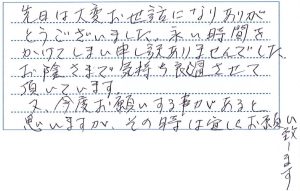 先日は大変お世話になりありが
とうございました。永い時間を
かけてしまい申し訳ありませんでした
お陰さまで気持ち良く過させて
頂いています。
又、今度お願いする事があると
思いますが、その時は宜しくお願い致します